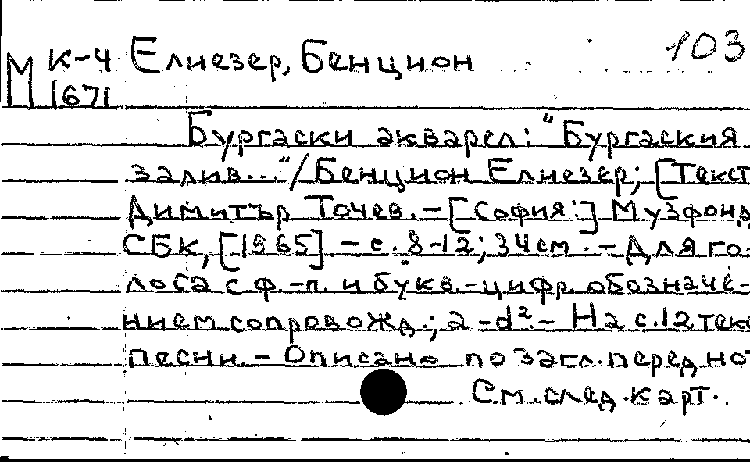 103
М К-4 Елиезер, Бенцион
1671
Бургаски акварел: "Бургаския
залив..." / Бенцион Елиезер; [Текст
Димитър Точев. - [София:] Музфонд
СБК, [1965] - с. 8-12; 34 см. - Для го-
лоса с ф.-п. и букв.-цифр. обозначе-
нием сопровожд.; a-d². - На с. 12 текс
песни. - Описано по загл. перед но
См. след. карт.